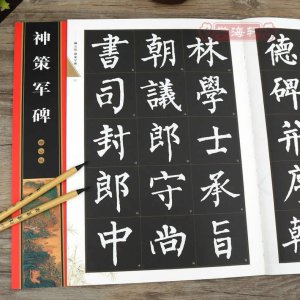 德碑并序翰
林學士承旨
朝議郎守尚
書司封郎中
神策军碑
海轩